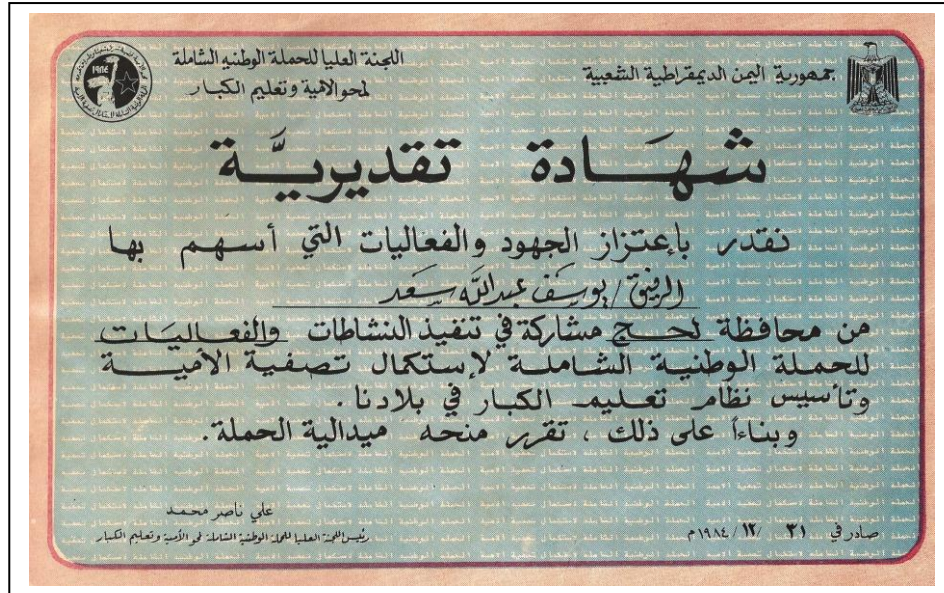 جمهورية اليمن الديمقراطية الشعبية
اللجنة العليا للحملة الوطنية الشاملة
لمحو الامية وتعليم الكبار
١٩٨٤
شهادة تقديريَّة
نقدر بإعتزاز الجهود والفعاليات التي أسهم بها
الرفيق / يوسف عبدالله سعد
من محافظة لحج مشاركة في تنفيذ النشاطات والفعاليات
للحملة الوطنية الشاملة لإستكمال تصفية الأمية
وتأسيس نظام تعليم الكبار في بلادنا .
وبناءاً على ذلك ، تقرر منحه ميدالية الحملة .
علي ناصر محمد
رئيس اللجنة العليا للحملة الوطنية الشاملة لمحو الأمية وتعليم الكبار
صادر في ٣١ / ١٢ / ١٩٨٤ م